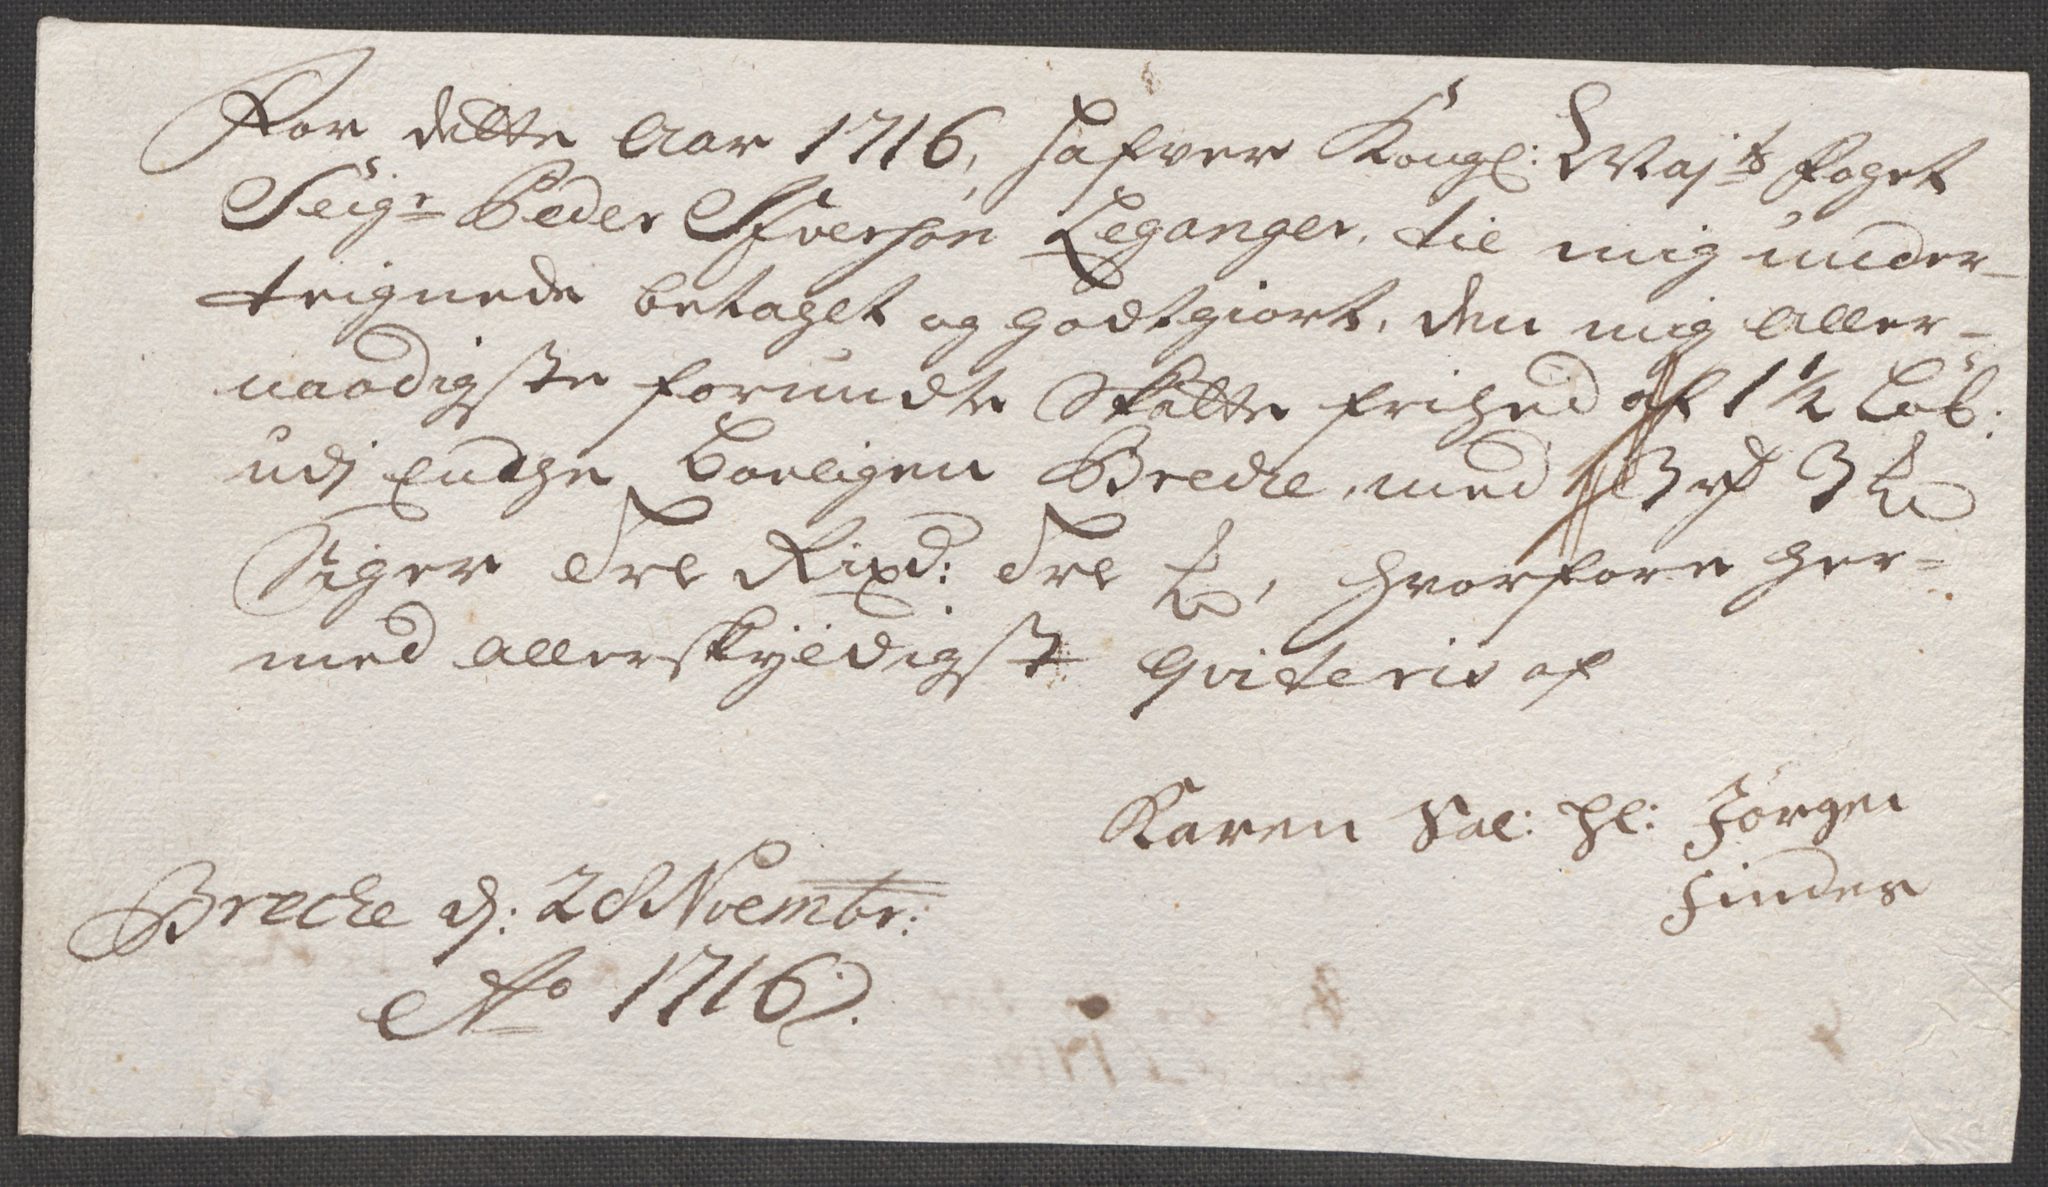 For dette Aar 1716, hafver Kongl: Maj:ts foget
Seigr Peder Ifversøn Leganger, til mig under-
teignede betaget og godtgiort, den mig Aller-
naadigste forundte Skatte frihed af 1½ Løb:
udj Enche boeligen Breche, med 3 rd 3 ℔
Siger Tre Rixd: Tre ℔, hvorfore her-
med allerskyldigst qviteris af
Karen Sal: hl: Jørgen
Findes
Breche d: 28 Novembr:
Ao 1716